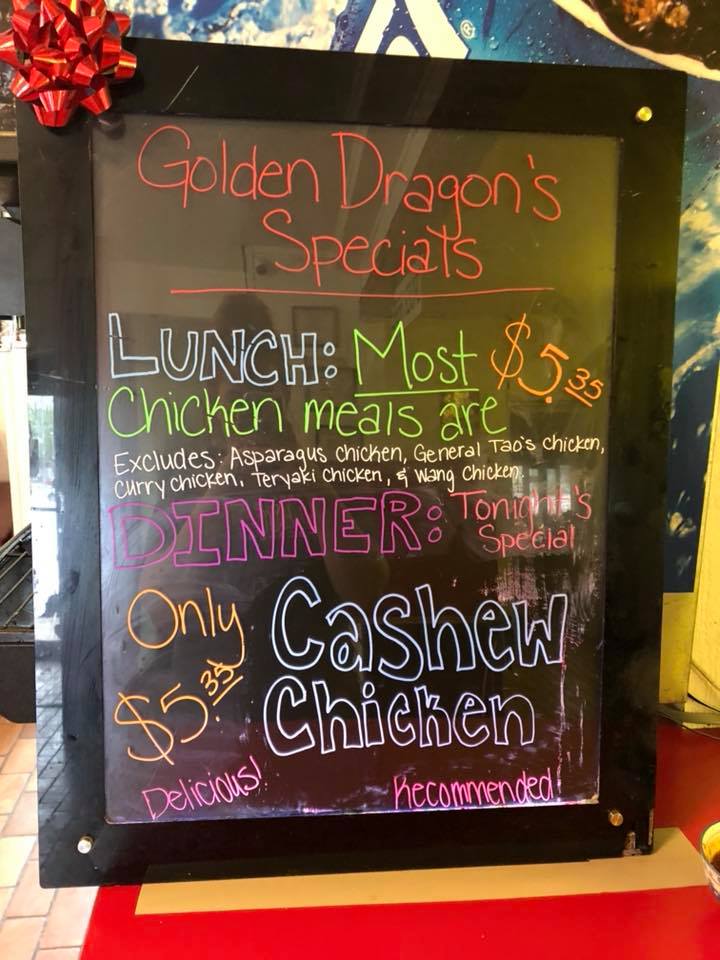 Golden Dragon's
Specials
LUNCH: Most $5.35
Chicken meals are
Excludes: Asparagus chicken, General Tao's chicken,
curry chicken, Teryaki chicken, & Wang chicken.
DINNER: Tonight's
Special
Only Cashew
$5.35 Chicken
Delicious! Recommended!
®